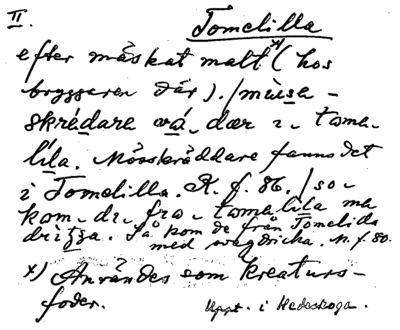 II.
Tomelilla
efter mäskat malt x) (hos
bryggaren där). /mùsa-
skrédare vá, dær i, toma-
líla. Mösskräddare fanns det
i Tomelilla. R. f. 86. /so,
kom, di, fra, tomalíla me
drizza. Så kom de från Tomelilla
med vagdricka. N. f. 80.
x) Användes som kreaturs-
foder.
Uppt. i Hedeskoga.